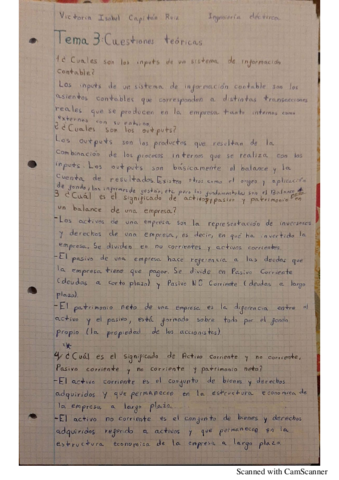 Victoria Isabel Capitán Ruiz Ingeniería eléctrica
Tema 3: Cuestiones teóricas
1 ¿Cuales son los inputs de un sistema de información
contable?
Los inputs de un sistema de información contable son los
asientos contables que corresponden a distintas transacciones
reales que se producen en la empresa tanto internas como
externas
2 ¿Cuales son los outputs?
Los outputs son los productos que resultan de la
combinación de los procesos internos que se realizan con los
inputs. Los outputs son básicamente el balance y la
cuenta de resultados. Existen otros como el origen y aplicación
de fondos, los informes de gestión, etc. pero los fundamentales son el Balance
3 ¿Cuál es el significado de activo, pasivo y patrimonio en
un balance de una empresa?
-Los activos de una empresa son la representación de inversiones
y derechos de una empresa, es decir, en qué ha invertido la
empresa. Se dividen en no corrientes y activos corrientes.
-El pasivo de una empresa hace referencia a las deudas que
la empresa tiene que pagar. Se divide en Pasivo Corriente
(deudas a corto plazo) y Pasivo NO Corriente (deudas a largo
plazo)
-El patrimonio neto de una empresa es la diferencia entre el
activo y el pasivo, está formado sobre todo por el fondo
propio (la propiedad de los accionistas)
4 ¿Cuál es el significado de Activo corriente y no corriente,
Pasivo corriente y no corriente y patrimonio neto?
-El activo corriente es el conjunto de bienes y derechos
adquiridos y que permanecen en la estructura económica de
la empresa a largo plazo
-El activo no corriente es el conjunto de bienes y derechos
adquiridos referido a activos y que permanece en la
estructura económica de la empresa a largo plazo
Scanned with CamScanner